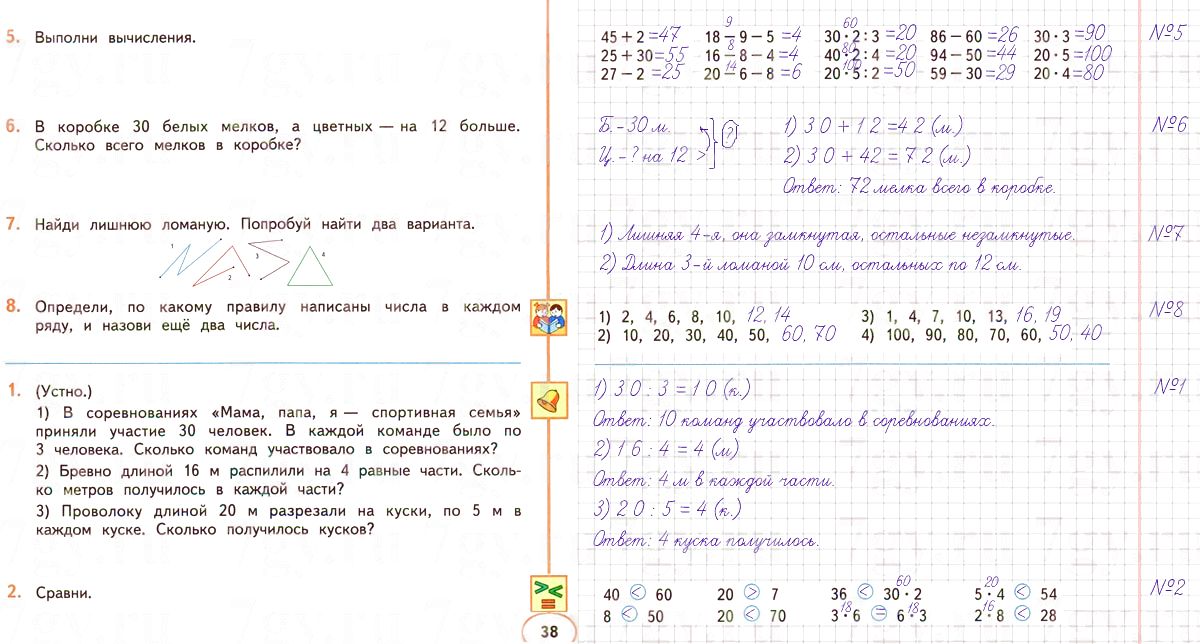 5. Выполни вычисления.
45 + 2 =47 18 − 9 − 5 =4 30 · 2 : 3 =20 86 − 60 =26 30 · 3 =90 №5
9 60
25 + 30 =55 16 − 8 − 4 =4 40 · 2 : 4 =20 94 − 50 =44 20 · 5 =100
8 80
27 − 2 =25 20 − 6 − 8 =6 20 · 5 : 2 =50 59 − 30 =29 20 · 4 =80
14 100
6. В коробке 30 белых мелков, а цветных — на 12 больше.
Сколько всего мелков в коробке?
Б. - 30 м. ?
Ц. - ? на 12 >
1) 30 + 12 = 42 (м.) №6
2) 30 + 42 = 72 (м.)
Ответ: 72 мелка всего в коробке.
7. Найди лишнюю ломаную. Попробуй найти два варианта.
1 2 3 4
1) Лишняя 4-я, она замкнутая, остальные незамкнутые. №7
2) Длина 3-й ломаной 10 см, остальных по 12 см.
8. Определи, по какому правилу написаны числа в каждом
ряду, и назови ещё два числа.
1) 2, 4, 6, 8, 10, 12, 14 3) 1, 4, 7, 10, 13, 16, 19 №8
2) 10, 20, 30, 40, 50, 60, 70 4) 100, 90, 80, 70, 60, 50, 40
1. (Устно.)
1) В соревнованиях «Мама, папа, я — спортивная семья»
приняли участие 30 человек. В каждой команде было по
3 человека. Сколько команд участвовало в соревнованиях?
2) Бревно длиной 16 м распилили на 4 равные части. Сколь-
ко метров получилось в каждой части?
3) Проволоку длиной 20 м разрезали на куски, по 5 м в
каждом куске. Сколько получилось кусков?
1) 30 : 3 = 10 (к.) №1
Ответ: 10 команд участвовало в соревнованиях.
2) 16 : 4 = 4 (м)
Ответ: 4 м в каждой части.
3) 20 : 5 = 4 (к.)
Ответ: 4 куска получилось.
2. Сравни.
60 20
40 < 60 20 > 7 36 < 30 · 2 5 · 4 < 54 №2
18 18 16
8 < 50 20 < 70 3 · 6 = 6 · 3 2 · 8 < 28
38